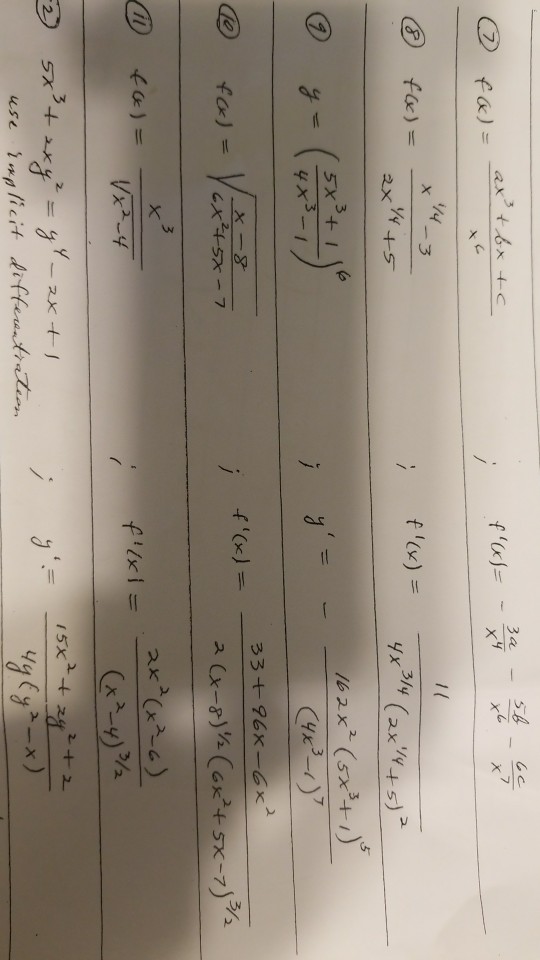 ⑦ f(x) = (ax³ + bx + c)/x⁶ ; f'(x) = - 3a/x⁴ - 5b/x⁶ - 6c/x⁷
⑧ f(x) = (x^(1/4) - 3)/(2x^(1/4) + 5) ; f'(x) = 11/(4x^(3/4) (2x^(1/4) + 5)²)
⑨ y = ((5x³ + 1)/(4x³ - 1))⁶ ; y' = - 162x² (5x³ + 1)⁵/(4x³ - 1)⁷
⑩ f(x) = √((x - 8)/(6x² + 5x - 7)) ; f'(x) = (33 + 96x - 6x²)/(2(x - 8)^(1/2) (6x² + 5x - 7)^(3/2))
⑪ f(x) = x³/√(x² - 4) ; f'(x) = 2x²(x² - 6)/(x² - 4)^(3/2)
⑫ 5x³ + 2xy² = y⁴ - 2x + 1 ; y' = (15x² + 2y² + 2)/(4y(y² - x))
use implicit differentiation